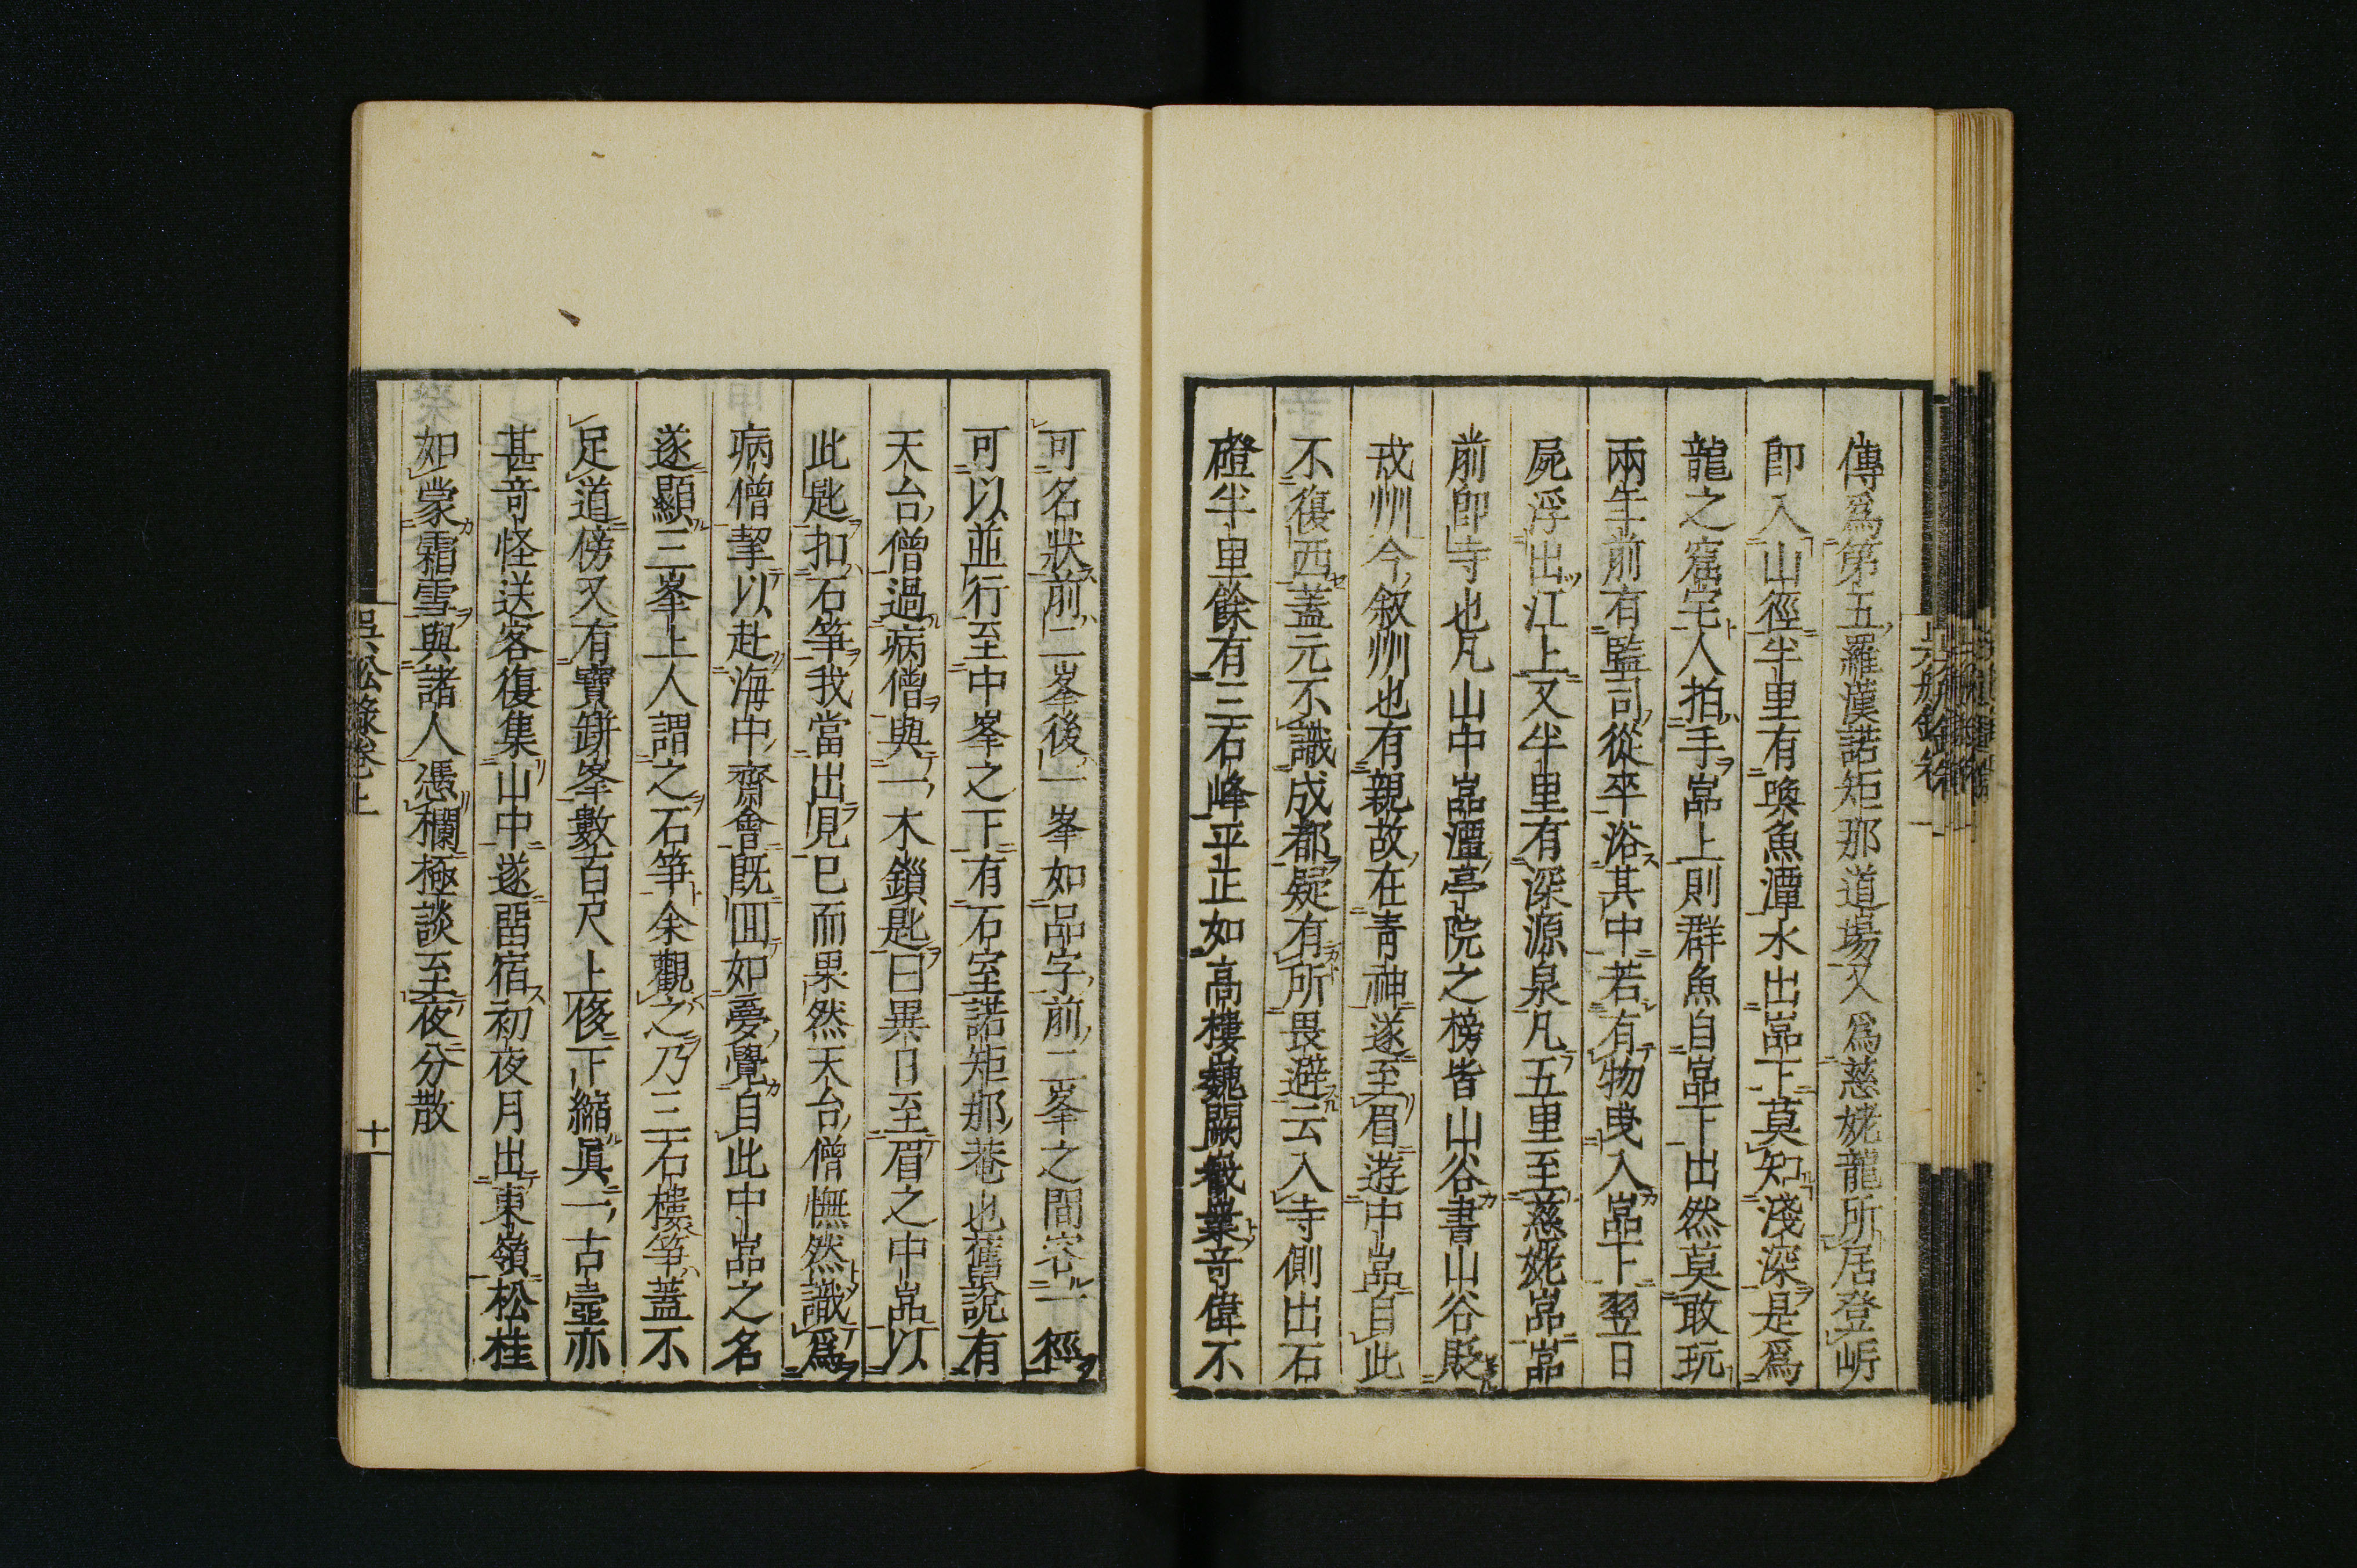 傳爲第五羅漢諾矩那道場又爲慈姥龍所居登岓
卽入山徑半里有喚魚潭水出嵓下莫知淺深是爲
龍之窟宅人拍手嵓上則群魚自嵓下出然莫敢玩
兩年前有監司從卒浴其中若有物曳入嵓下翌日
屍浮出江上又半里有深源泉凡五里至慈姥嵓嵓
前卽寺也凡山中嵓潭亭院之榜皆山谷書山谷貶
戎州今叙州也有親故在青神遂至眉遊中嵓自此
不復西蓋元不識成都疑有所畏避云入寺側出石
磴半里餘有三石峰平正如高樓巍闕巀嶪奇偉不
可名狀前二峯後一峯如品字前二峯之間容一徑
可以並行至中峯之下有石室諾矩那菴也舊說有
天台僧過病僧與一木鎖匙曰異日至眉之中嵓以
此匙扣石筍我當出見已而果然天台僧憮然識爲
病僧挈以赴海中齋會旣回如夢覺自此中嵓之名
遂顯三峯上人謂之石筍余觀之乃三石樓筍蓋不
足道傍又有寶缾峯數百尺上侈下縮眞一古壺亦
甚奇怪送客復集山中遂畱宿初夜月出東嶺松桂
如蒙霜雪與諸人憑欄極談至夜分散
吳舩錄卷上
十